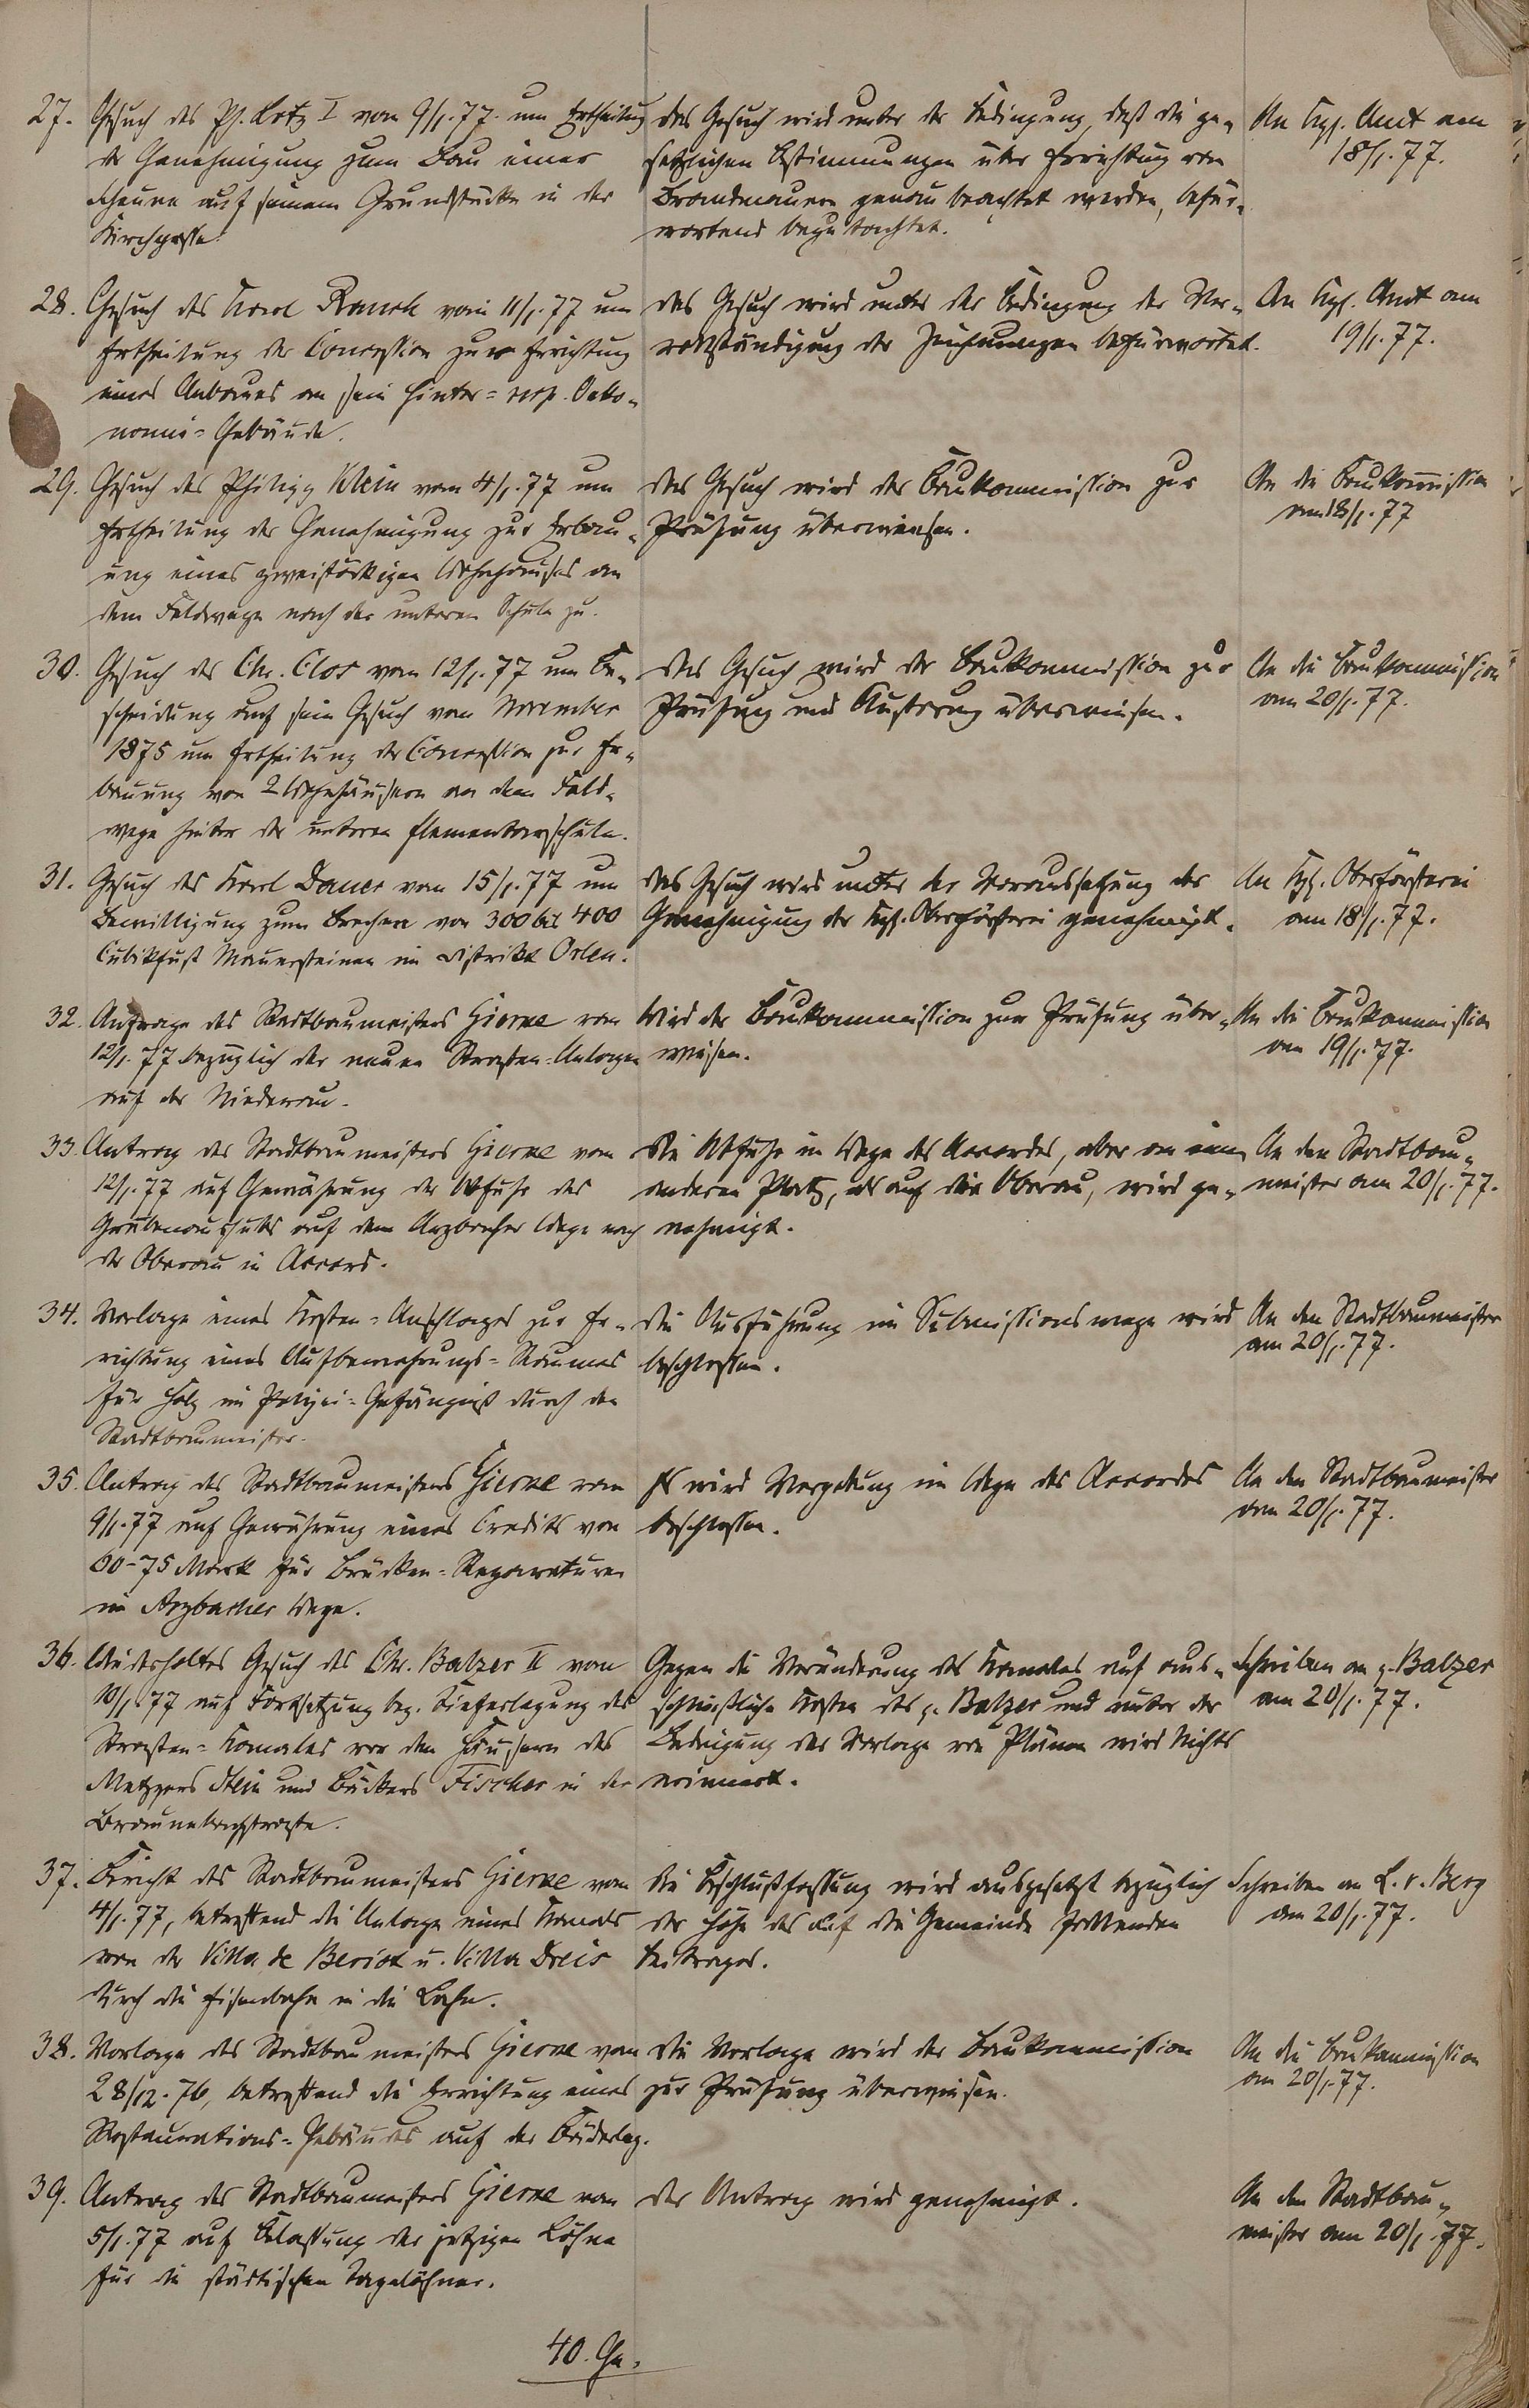 27. Gesuch des Ph. Lotz I vom 9/1. 77. um Ertheilung
der Genehmigung zum Bau einer
Scheune auf seinem Grundstücke in der
Kirchgasse.
das Gesuch wird unter der Bedingung, daß die ge-
setzlichen Bestimmungen über Errichtung von
Brandmauern genau beachtet werden, befür-
wortend begutachtet.
An Kgl. Amt am
18/1. 77.
28. Gesuch des Karl Ranch vom 11/1. 77 um
Ertheilung der Concession zur Errichtung
eines Anbaues an sein Hinter= resp. Oeko-
nomie=Gebäude.
das Gesuch wird unter der Bedingung der Ver-
vollständigung der Zeichnungen befürwortet.
An Kgl. Amt am
19/1. 77.
29. Gesuch des Philipp Klein vom 4/1. 77 um
Ertheilung der Genehmigung zur Erbau-
ung eines zweistöckigen Wohnhauses an
dem Feldwege nach der unteren Schule zu.
Das Gesuch wird der Baukommission zur
Prüfung überwiesen.
An die Baukommission
am 18/1. 77
30. Gesuch des Chr. Clos vom 12/1. 77 um Be-
scheidung auf sein Gesuch vom November
1875 um Ertheilung der Concession zur Er-
bauung von 2 Wohnhäusern an dem Feld-
wege hinter der unteren Elementarschule.
Das Gesuch wird der Baukommission zur
Prüfung und Äußerung überwiesen.
An die Baukommission
am 20/1. 77.
31. Gesuch des Karl Dauer vom 15/1. 77 um
Bewilligung zum Brechen von 300 bis 400
Cubikfuß Mauersteinen im Distrikt Orlen.
das Gesuch wird unter der Voraussetzung der
Genehmigung der Kgl. Oberförsterei genehmigt.
An Kgl. Oberförsterei
am 18/1. 77.
32. Anfrage des Stadtbaumeisters Gierne vom
12/1. 77 bezüglich der neuen Straßen=Anlagen
auf der Niederau.
Wird der Baukommission zur Prüfung über-
wiesen.
An die Baukommission
am 19/1. 77.
33. Antrag des Stadtbaumeisters Gierne vom
12/1. 77 auf Gewährung der Abfuhr des
Grubenausputz auf dem Arzbacher Wege nach
der Oberau in Accord.
Die Abfuhr im Wege des Accordes, aber an einen
anderen Platz, als auf die Oberau, wird ge-
nehmigt.
An den Stadtbau-
meister am 20/1. 77.
34. Vorlage eines Kosten=Anschlages zur Er-
richtung eines Aufbewahrungs=Raumes
für Holz im Polizei=Gefängniß durch den
Stadtbaumeister.
Die Ausführung im Submissionswege wird
beschlossen.
An den Stadtbaumeister
am 20/1. 77.
35. Antrag des Stadtbaumeisters Gierne vom
9/1. 77 auf Gewährung eines Credits von
60-75 Mark für Brücken=Reparaturen
im Arzbacher Wege.
Es wird Vergebung im Wege des Accordes
beschlossen.
An den Stadtbaumeister
am 20/1. 77.
36. Wiederholtes Gesuch des Chr. Balzer II vom
10/1. 77 auf Fortsetzung bez. Tieferlegung des
Straßen=Kanales vor den Häusern des
Metzgers Stein und Bäckers Fischer in der
Braunebachstraße.
Gegen die Veränderung des Kanales auf aus-
schließliche Kosten des g. Balzer und unter der
Bedingung der Vorlage von Plänen wird Nichts
erinnert.
Schreiben an g. Balzer
am 20/1. 77.
37. Bericht des Stadtbaumeisters Gierne vom
4/1. 77, betreffend die Anlage eines Kanals
von der Villa de Beriot u. Villa Dreis
durch die Eisenbahn in die Lahn.
Die Beschlußfassung wird ausgesetzt bezüglich
der Höhe des auf die Gemeinde fallenden
Beitrages.
Schreiben an L. v. Berg
am 20/1. 77.
38. Vorlage des Stadtbaumeisters Gierne vom
28/12. 76, betreffend die Errichtung eines
Restaurations=Gebäudes auf der Bäderley.
Die Vorlage wird der Baukommission
zur Prüfung überwiesen.
An die Baukommission
am 20/1. 77.
39. Antrag des Stadtbaumeisters Gierne vom
5/1. 77 auf Belassung der jetzigen Löhne
für die städtischen Tagelöhner.
Der Antrag wird genehmigt.
An den Stadtbau-
meister am 20/1. 77.
40. Ge.